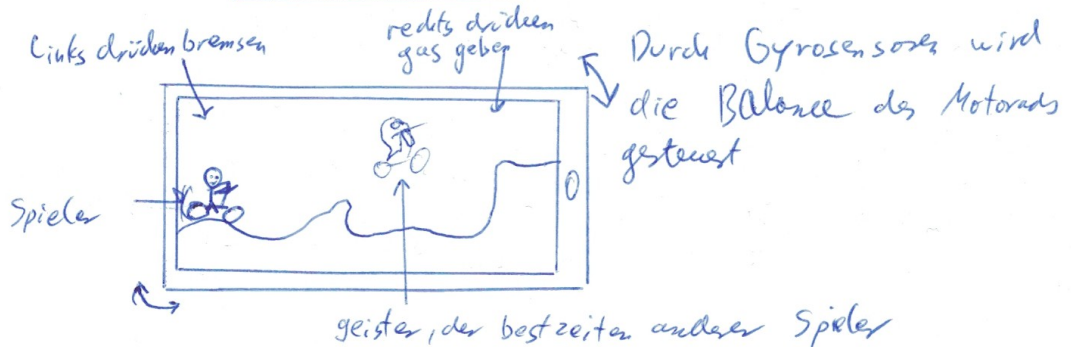 links drücken bremsen
rechts drücken
gas geben
Durch Gyrosensoren wird
die Balance des Motorads
gesteuert
Spieler
geister, der bestzeiten anderer Spieler